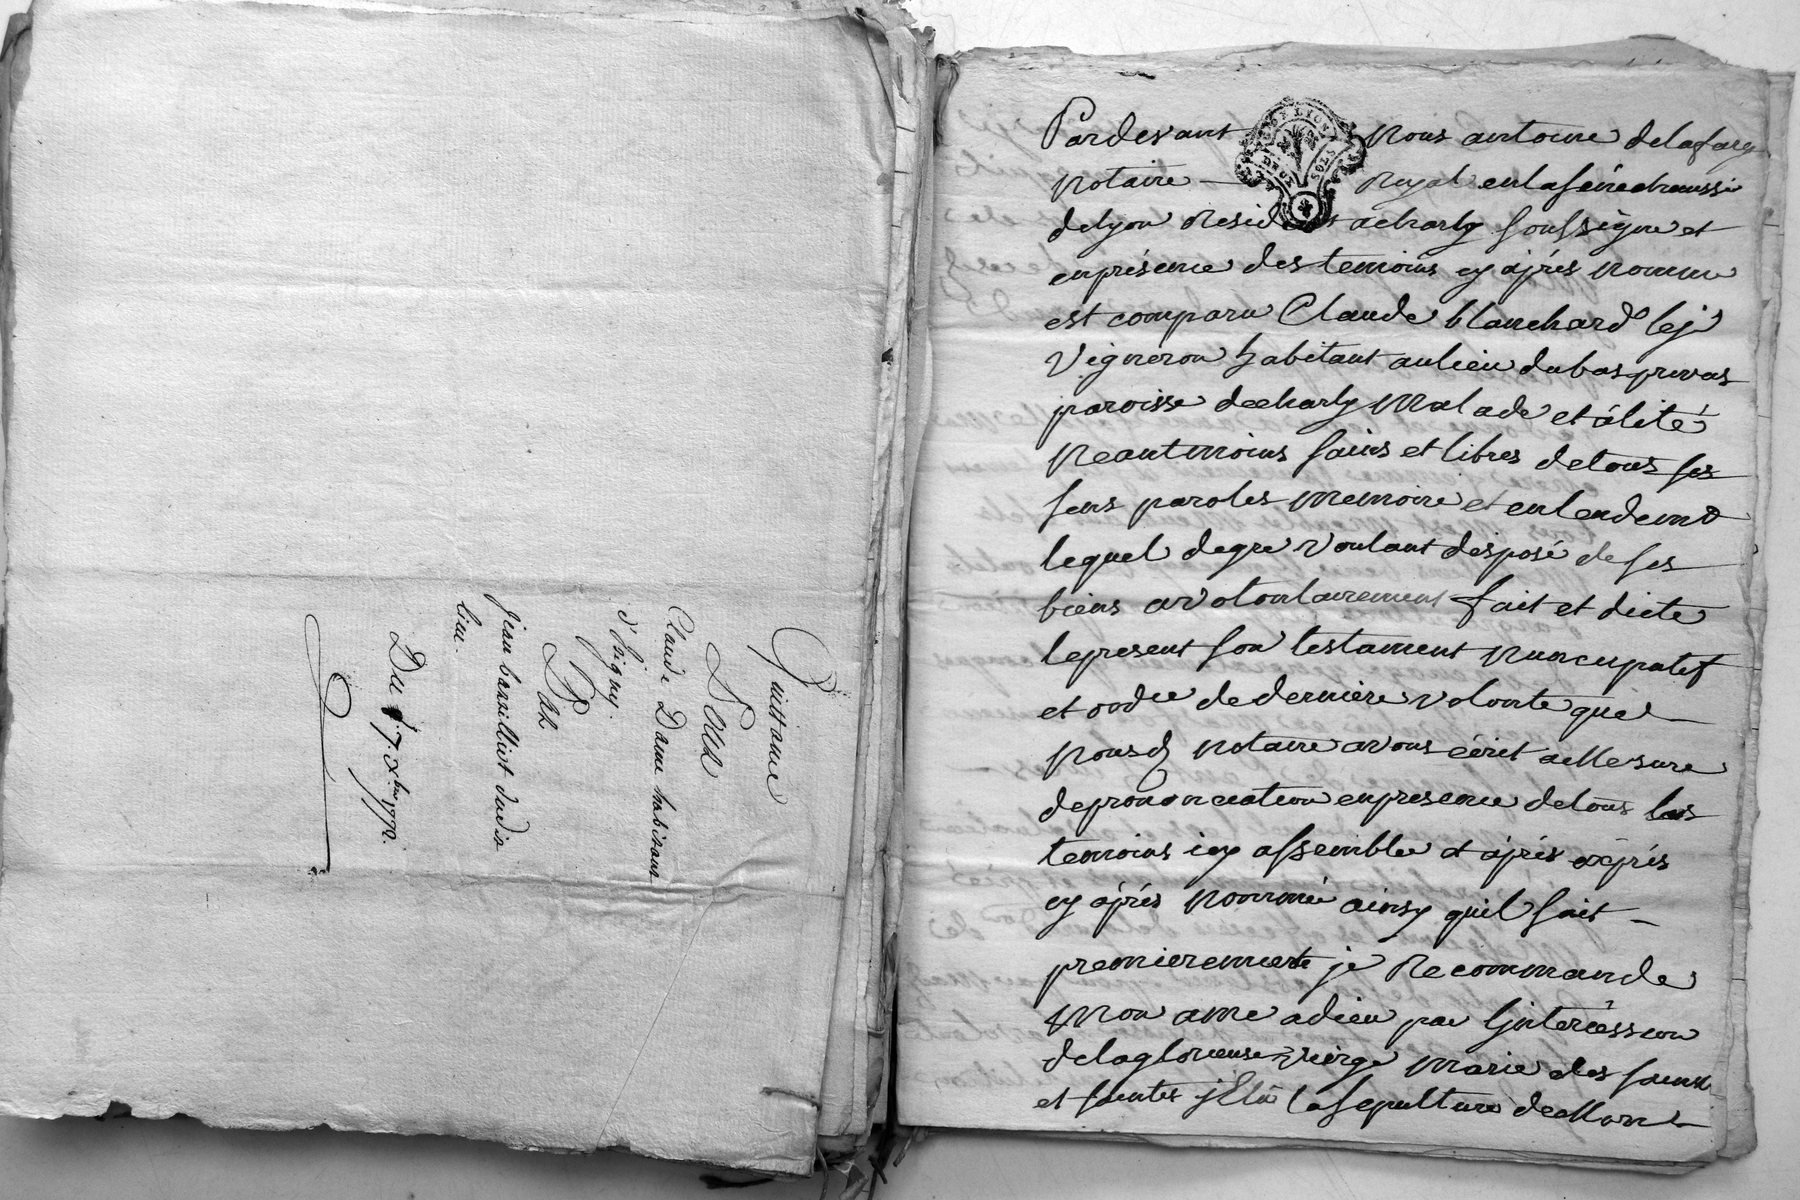 Quittance
Pour
Claude Dame habitant
d'Irigny.
Par
Jean barailliat dudit
lieu.
Du 7. Xbre 1772.
Pardevant Nous antoine delafarg
Notaire — Royal enlasénéchaussé
delyon Resident acharly soussigné et
enprésence des temoins cy aprés nommé
est comparu Claude blanchard le je
Vigneron habitant aulieu dubas privas
paroisse decharly Malade et alité
Neantmoins sains et libres detous ses
sens paroles memoire et entendemt
lequel degre voulant disposé de ses
biens avolontairement fait et dicté
lepresent son testament Nuncupatif
et ordre de derniere volonté que —
Nousd Notaire avons écrit aMesure
deprononciation enpresence detous les
temoins icy assemblé et aprés
cy aprés Nommé ainsy quil suit —
premierement je Recommande
Mon ame adieu par Lintercession
delaglorieuse vierge Marie des saints
et saintes la sepulture deMon —
DE LYON
DEUX SOLS